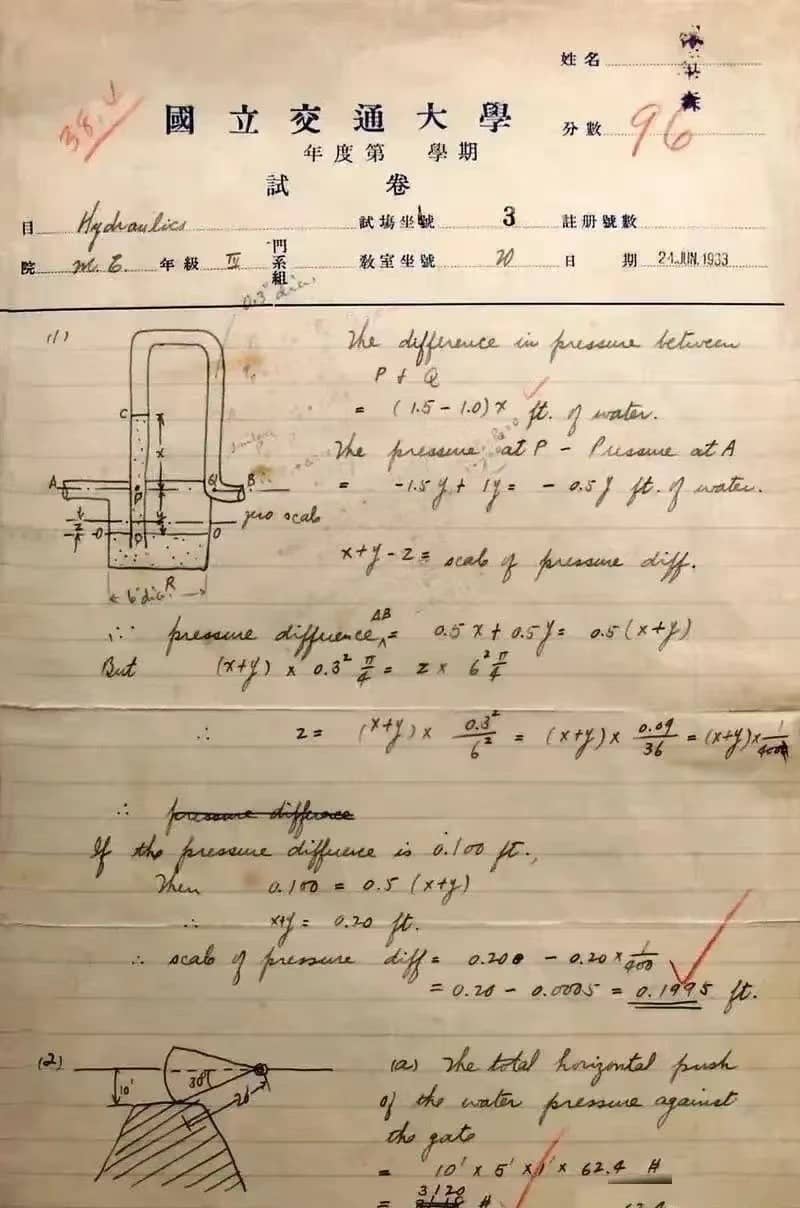 姓名 森
38.
國立交通大學
分數 96
年度第 學期
試 卷
目 Hydraulics 試場坐號 3 註册號數
院 M.E. 年級 IV 門系組 教室坐號 20 日期 24 JUN. 1933
0.3" dia.
(1)
The difference in pressure between
P & Q
= (1.5 - 1.0) x ft. of water.
The pressure at P - Pressure at A
= -1.5 y + 1y = - 0.5 y ft. of water.
C
x
A P Q B
zero scale
z
O D O
R
6" dia.
x+y-z = scale of pressure diff.
∴ pressure difference AB = 0.5 x + 0.5 y = 0.5 (x+y)
But (x+y) x 0.3² π/4 = z x 6² π/4
∴ z = (x+y) x 0.3²/6² = (x+y) x 0.09/36 = (x+y) x 1/400
∴ pressure difference
If the pressure difference is 0.100 ft.,
Then 0.100 = 0.5 (x+y)
∴ x+y = 0.20 ft.
∴ scale of pressure diff = 0.200 - 0.20 x 1/400
= 0.20 - 0.0005 = 0.1995 ft.
(2)
10'
30°
20'
(a) The total horizontal push
of the water pressure against
the gate
= 10' x 5' x 1' x 62.4 #
= 3120 #